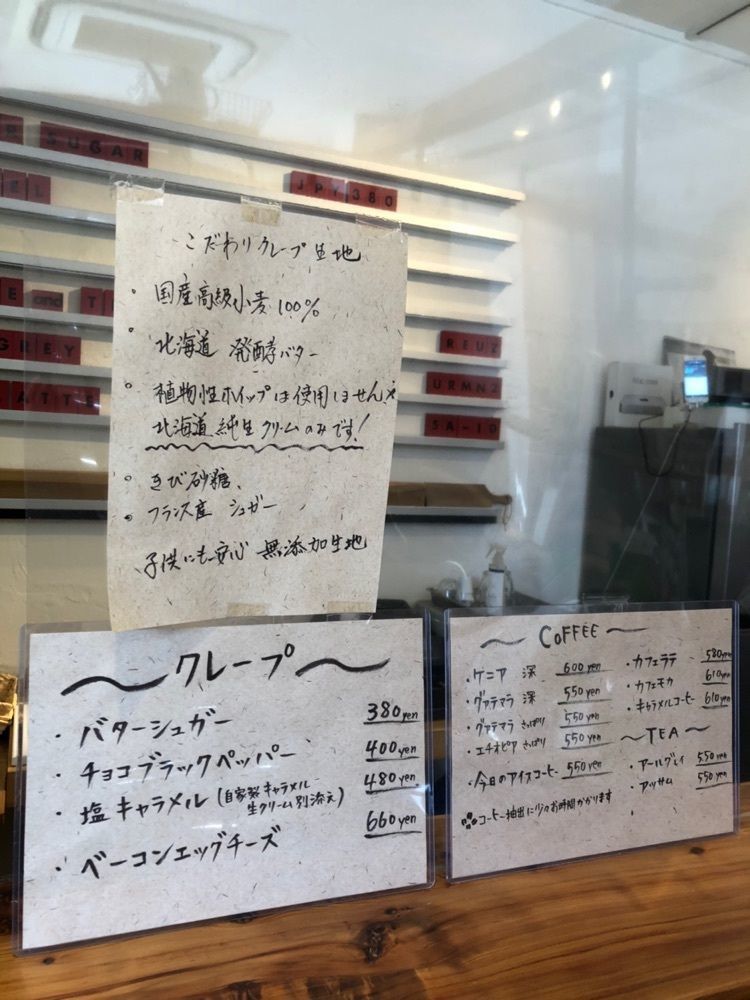 SUGAR
JPY380
EL
E and T
GREY
ATTE
REUZ
URMN2
SA-10
こだわりクレープ生地
・国産高級小麦100%
・北海道 発酵バター
・植物性ホイップは使用しません
北海道純生クリームのみです!
・きび砂糖、
・フランス産 シュガー
子供にも安心 無添加生地
〜クレープ〜
・バターシュガー 380yen
・チョコブラックペッパー 400yen
・塩キャラメル(自家製キャラメル 生クリーム別添え) 480yen
・ベーコンエッグチーズ 660yen
〜COFFEE〜
・ケニア 深 600yen
・グァテマラ 深 550yen
・グァテマラ さっぱり 550yen
・エチオピア さっぱり 550yen
・今日のアイスコーヒー 550yen
コーヒー抽出に少々お時間かかります
・カフェラテ 580yen
・カフェモカ 610yen
・キャラメルコーヒー 610yen
〜TEA〜
・アールグレイ 550yen
・アッサム 550yen